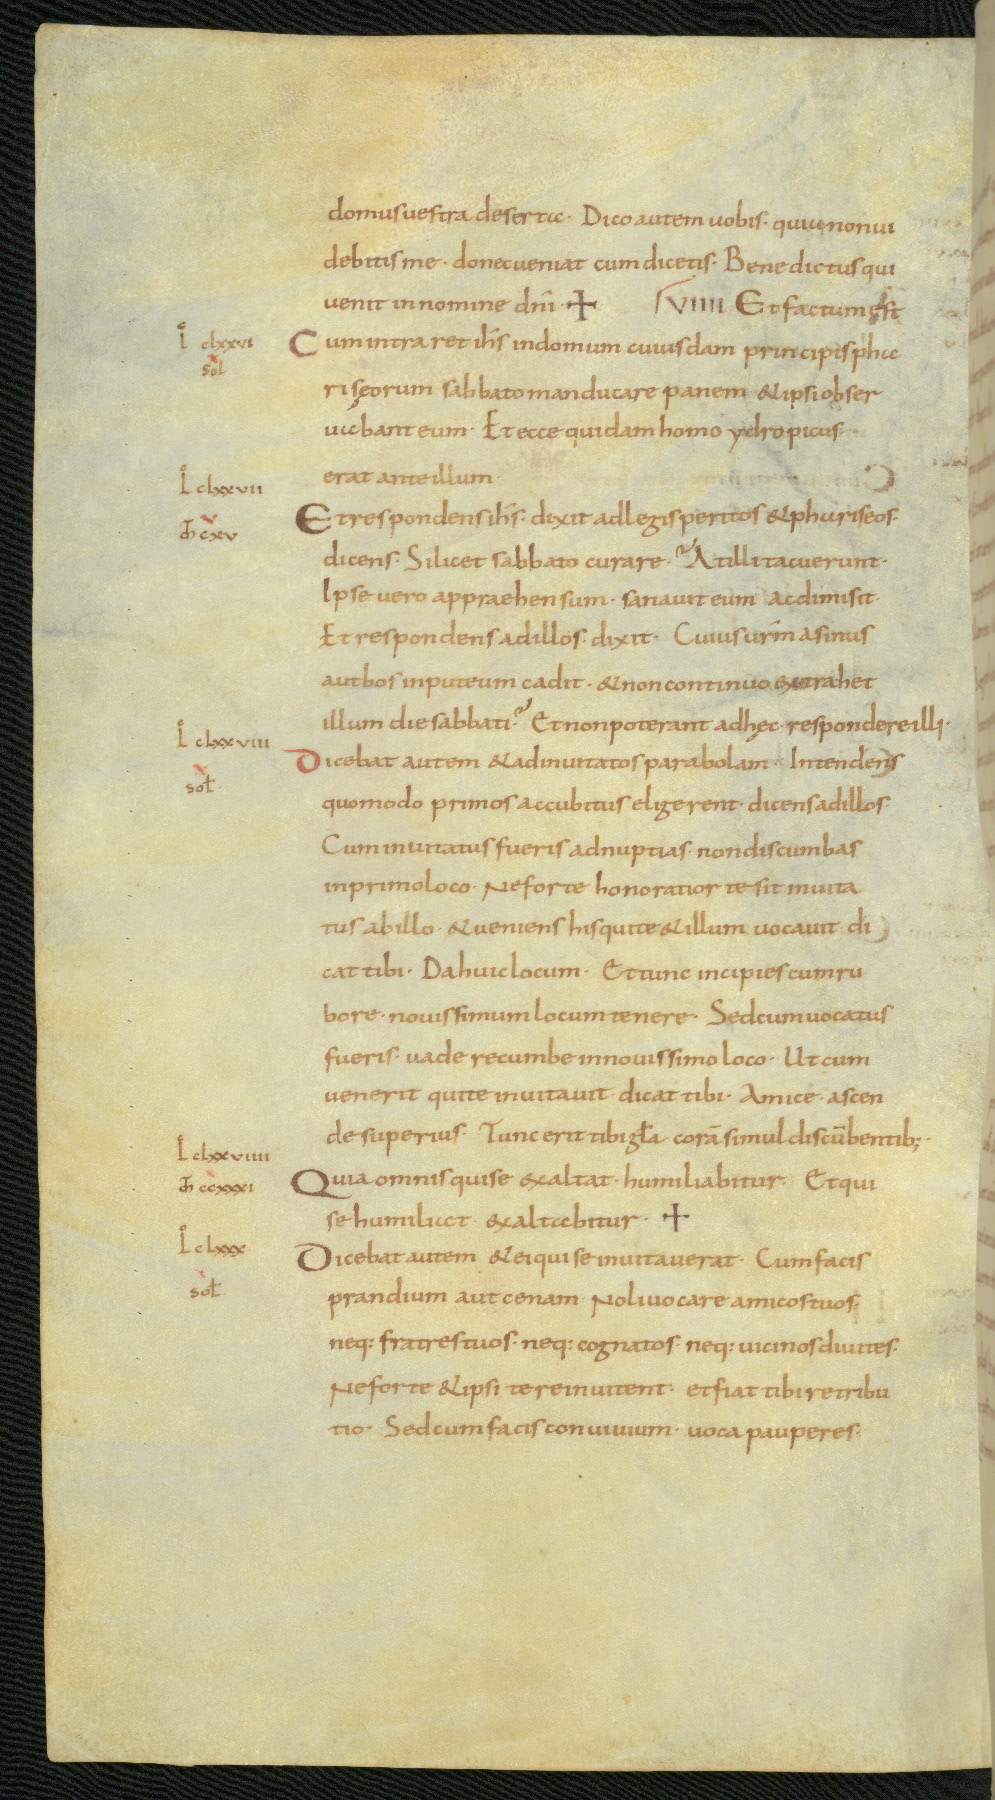 domus uestra deserta · Dico autem uobis · quia non ui
debitis me · donec ueniat cum dicetis · Benedictus qui
uenit in nomine dn̄i · + Lviiii Et factum est
L̊ clxxvi
sol
Cum intraret ih̄s in domum cuiusdam principis pha
riseorum sabbato manducare panem & ipsi obser
uabant eum · Et ecce quidam homo ydropicus ·
erat ante illum ·
L̊ clxxvii
m̄ cxv
Et respondens ih̄s · dixit ad legis peritos & phariseos ·
dicens · Si licet sabbato curare · At illi tacuerunt ·
Ipse uero appraehensum · sanauit eum ac dimisit ·
Et respondens ad illos · dixit · Cuius urm̄ asinus
aut bos in puteum cadit · & non continuo extrahet
illum die sabbati · Et non poterant ad hęc · respondere illi ·
L̊ clxxviii
sol
Dicebat autem & ad inuitatos parabolam · Intendens
quomodo primos accubitus eligerent · dicens ad illos ·
Cum inuitatus fueris ad nuptias · non discumbas
in primo loco · Ne forte honoratior te sit inuita
tus ab illo · & ueniens his qui te & illum uocauit di
cat tibi · Da huic locum · Et tunc incipies cum ru
bore · nouissimum locum tenere · Sed cum uocatus
fueris · uade recumbe in nouissimo loco · Ut cum
uenerit qui te inuitauit · dicat tibi · Amice · ascen
de superius · Tunc erit tibi gła corā simul discūbentib; ·
L̊ clxxviiii
m̄ ccxxxi
Quia omnis qui se exaltat · humiliabitur · Et qui
se humiliat · exaltabitur · +
L̊ clxxx
sol
Dicebat autem & ei qui se inuitauerat · Cum facis
prandium aut cenam · Noli uocare amicos tuos ·
neq: fratres tuos · neq: cognatos · neq: uicinos diuites ·
Ne forte & ipsi te reinuitent · et fiat tibi retribu
tio · Sed cum facis conuiuium · uoca pauperes ·